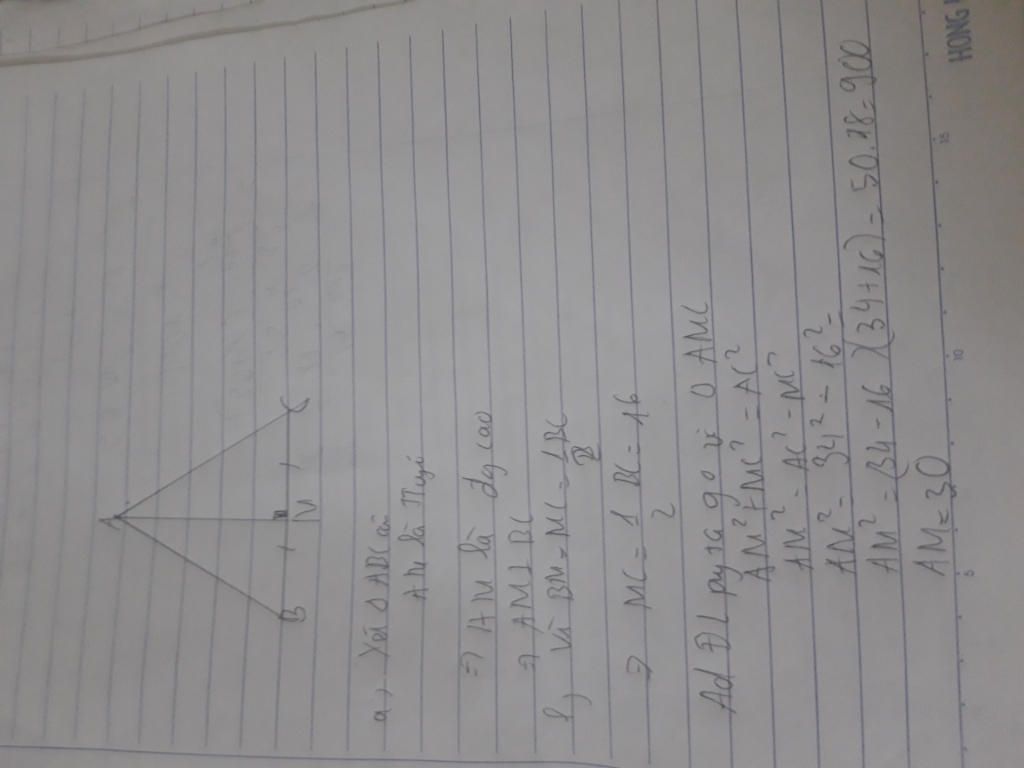 A
B
M
C
a, Xét Δ ABC cân
AM là Tuyế
=> AM là đg cao
=> AM ⊥ BC
b, Vì BM = MC = 1/2 BC
=> MC = 1/2 BC = 16
Ad ĐL pytago v Δ AMC
AM² + MC² = AC²
AM² = AC² - MC²
AM² = 34² - 16² =
AM² = (34 - 16)(34+16) = 50.18 = 900
AM = 30
5 10 15
HONG